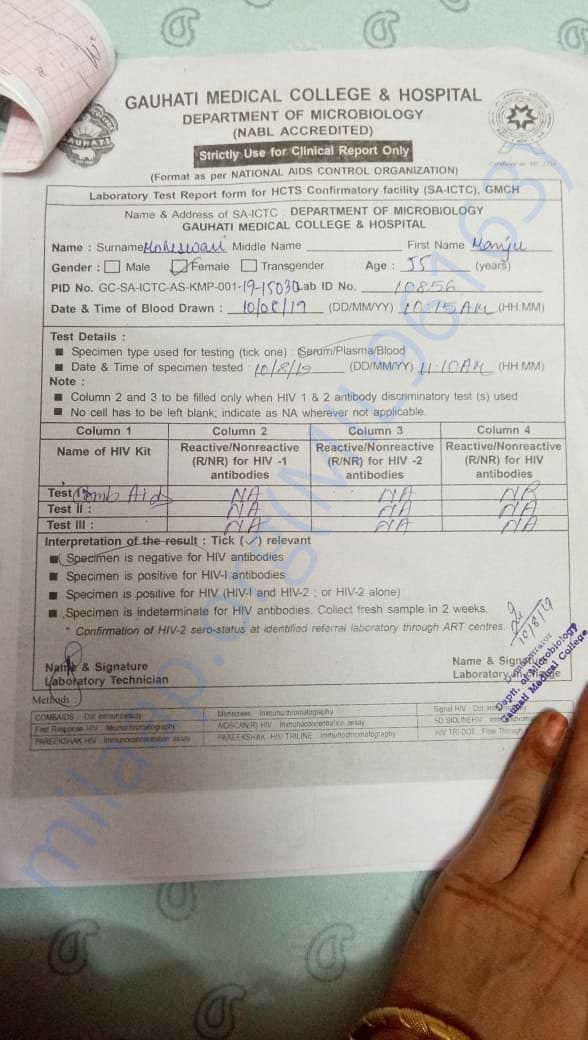 GAUHATI MEDICAL COLLEGE & HOSPITAL
DEPARTMENT OF MICROBIOLOGY
(NABL ACCREDITED)
Strictly Use for Clinical Report Only
(Format as per NATIONAL AIDS CONTROL ORGANIZATION)
Laboratory Test Report form for HCTS Confirmatory facility (SA-ICTC), GMCH
Name & Address of SA-ICTC : DEPARTMENT OF MICROBIOLOGY
GAUHATI MEDICAL COLLEGE & HOSPITAL
Name : Surname Moheswari Middle Name First Name Manju
Gender : Male Female Transgender Age : 55 (years)
PID No. GC-SA-ICTC-AS-KMP-001-19-15030 Lab ID No. 10856
Date & Time of Blood Drawn : 10/08/19 (DD/MM/YY) 10-15AM (HH:MM)
Test Details :
Specimen type used for testing (tick one) : Serum/Plasma/Blood
Date & Time of specimen tested : 10/8/19 (DD/MM/YY) 11:10AM (HH:MM)
Note :
Column 2 and 3 to be filled only when HIV 1 & 2 antibody discriminatory test (s) used
No cell has to be left blank; indicate as NA wherever not applicable.
Column 1 Column 2 Column 3 Column 4
Name of HIV Kit Reactive/Nonreactive (R/NR) for HIV -1 antibodies Reactive/Nonreactive (R/NR) for HIV -2 antibodies Reactive/Nonreactive (R/NR) for HIV antibodies
Test I: Comb Aids NA NA NR
Test II : NA NA NA
Test III : NA NA NA
Interpretation of the result : Tick (✓) relevant
Specimen is negative for HIV antibodies
Specimen is positive for HIV-I antibodies
Specimen is positive for HIV (HIV-I and HIV-2 ; or HIV-2 alone)
Specimen is indeterminate for HIV antibodies. Collect fresh sample in 2 weeks.
* Confirmation of HIV-2 sero-status at identified referral laboratory through ART centres.
10/8/19
Name & Signature
Laboratory Technician
Name &
Laboratory
Deptt. of Microbiology
Gauhati Medical College
Methods :
COMBAIDS : Dot immunoassay
First Response HIV : Immunochromatography
PAREEKSHAK HIV : Immunoconcentration assay
Immunochromatography
HIV : Immunoconcentration assay
PAREEKSHAK HIV TRILINE : Immunochromatography
Signal HIV : Dot
SD BIOLINE HIV
HIV TRI-DOT : Flow Through
milaap.org(MIL96163)